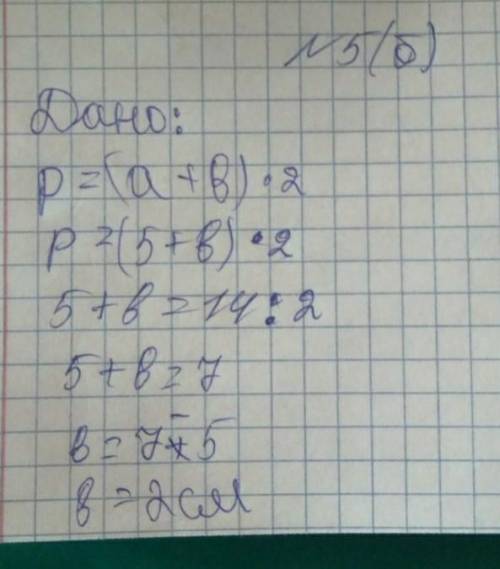 №5(б)
Дано:
P=(a+в)·2
P=(5+в)·2
5+в=14:2
5+в=7
в=7-5
в=2см